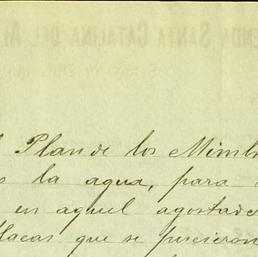 ENDA SANTA CATALINA DEL AL
Plan de los Mimbr
la agua, para
en aquel agostade
lacas que se pusieron